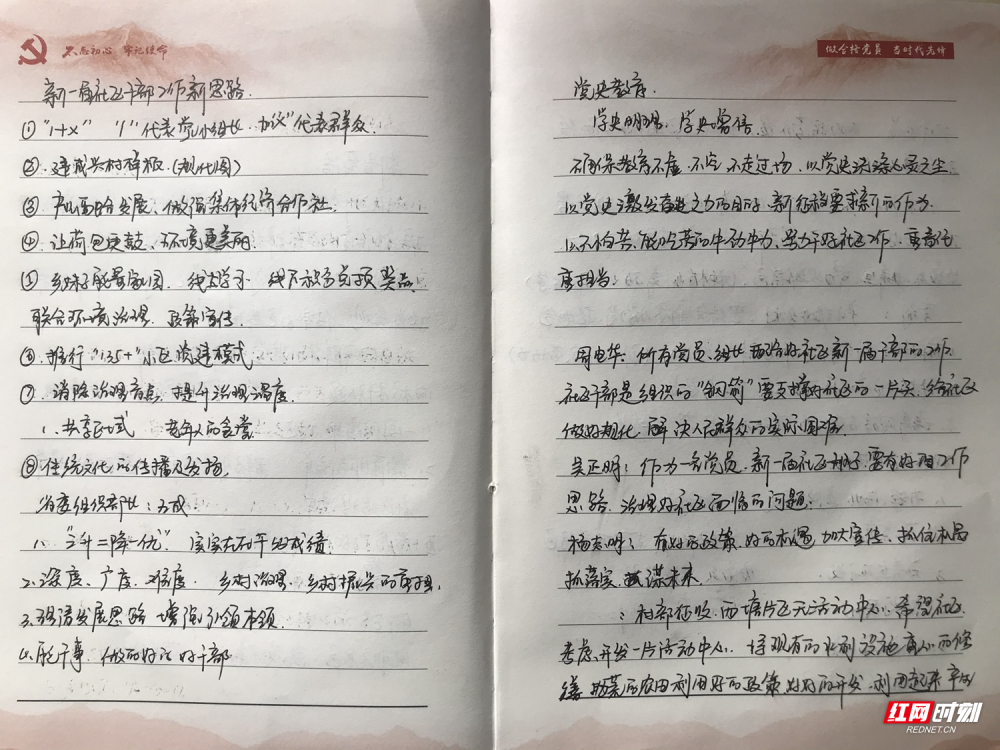 不忘初心 牢记使命
新一届社区干部工作新思路
①“1+X” “1”代表党小组长 加“X”代表群众
②建成兴村样板(现代园)
③产业融合发展、做强集体经济合作社
④让荷包更鼓、环境更美丽
⑤乡味 家园 线上学习 线下 奖品
联合环境治理、政策宣传
⑥推行“135+”小区党建模式
⑦消除治理盲点,提升治理温度
1、共享 式 老年人的食堂
⑧传统文化的传播及发扬
省委组织部 :
1、“三升二降一优” 实实在在 出成绩
2、深度、广度、 度 乡村治理、乡村振兴的
3、理清发展思路 增强引领本领
4、能干事、做的好 好干部
做合格党员 当时代先锋
党史教育
学史明理、学史增信
确保教育不虚、不空、不走过场,以党史涤心灵之尘
以党史激发奋进之力的目的、新征程要求新的作为
以不怕苦、能吃苦的牛劲牛力、 干好社区工作、
担当
周电华:所有党员、组长 配合好社区新一届干部的工作
社区干部是组织的“钢筋”要 撑好社区的一片天、给社区
做好规化、解决人民群众的实际困难
吴正明:作为一名党员、新一届社区班子,要有好的工作
思路,治理好社区面临的问题。
杨志明:有好的政策、好的机遇、加大宣传、抓住机
抓落实 谋未来
: 征收、西塘片区无活动中心、希望社区
考虑开发一片活动中心、将现有的水利设施 的修
缮 的农田利用好的政策 好好的开发、利用起来
红网时刻
REDNET.CN